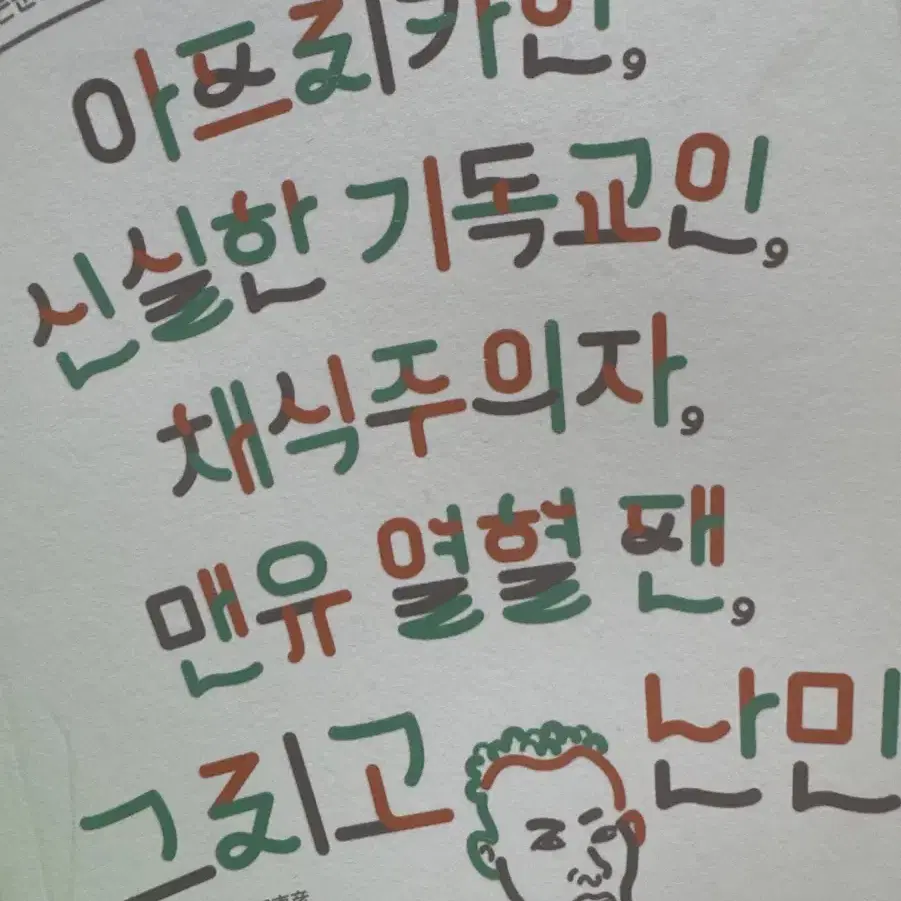 아프리카인,
신실한 기독교인,
채식주의자,
맨유 열혈 팬,
그리고 난민